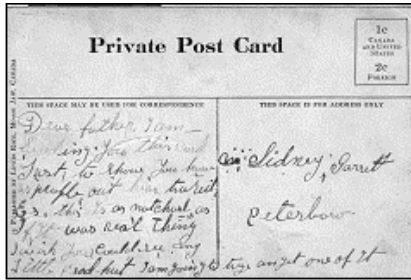 Private Post Card
1c
CANADA
AND UNITED
STATES
2c
FOREIGN
THIS SPACE MAY BE USED FOR CORRESPONDENCE
THIS SPACE IS FOR ADDRESS ONLY
Dear father I am
you this card
Just to show you how
people out here
this Is as natchurl as
If It was real thing
I wish you could see my
little but I am going to try an get one of It
Sidney Garrett
Peterboro